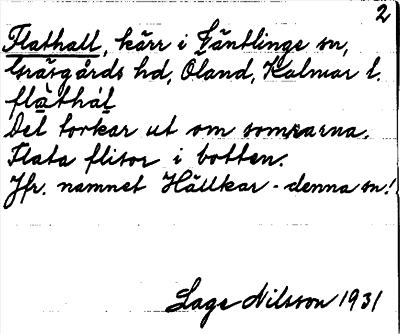 2
Flathall, kärr i Gäntlinge sn,
Gräsgårds hd, Öland, Kalmar l.
flàthál
Det torkar ut om somrarna.
Flata flisor i botten.
Jfr. namnet Hällkar - denna sn!
Lage Nilsson 1931